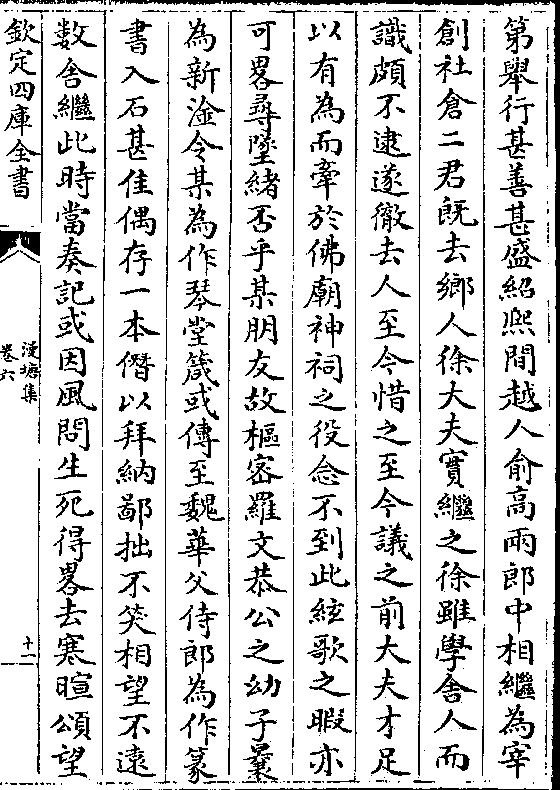 第舉行甚善甚盛紹熙間越人俞高兩郎中相繼為宰
創社倉二君既去鄉人徐大夫實繼之徐雖學舍人而
識頗不逮遂徹去人至今惜之至今議之前大夫才足
以有為而牽於佛廟神祠之役念不到此絃歌之暇亦
可畧尋墜緒否乎某朋友故樞宻羅文恭公之幼子曩
為新淦令某為作琴堂箴或傳至魏華父侍郎為作篆
書入石甚佳偶存一本僭以拜納鄙拙不笑相望不遠
数舍繼此時當奏記或因風問生死得畧去寒暄頌望
欽定四庫全書
漫塘集
卷六
十二